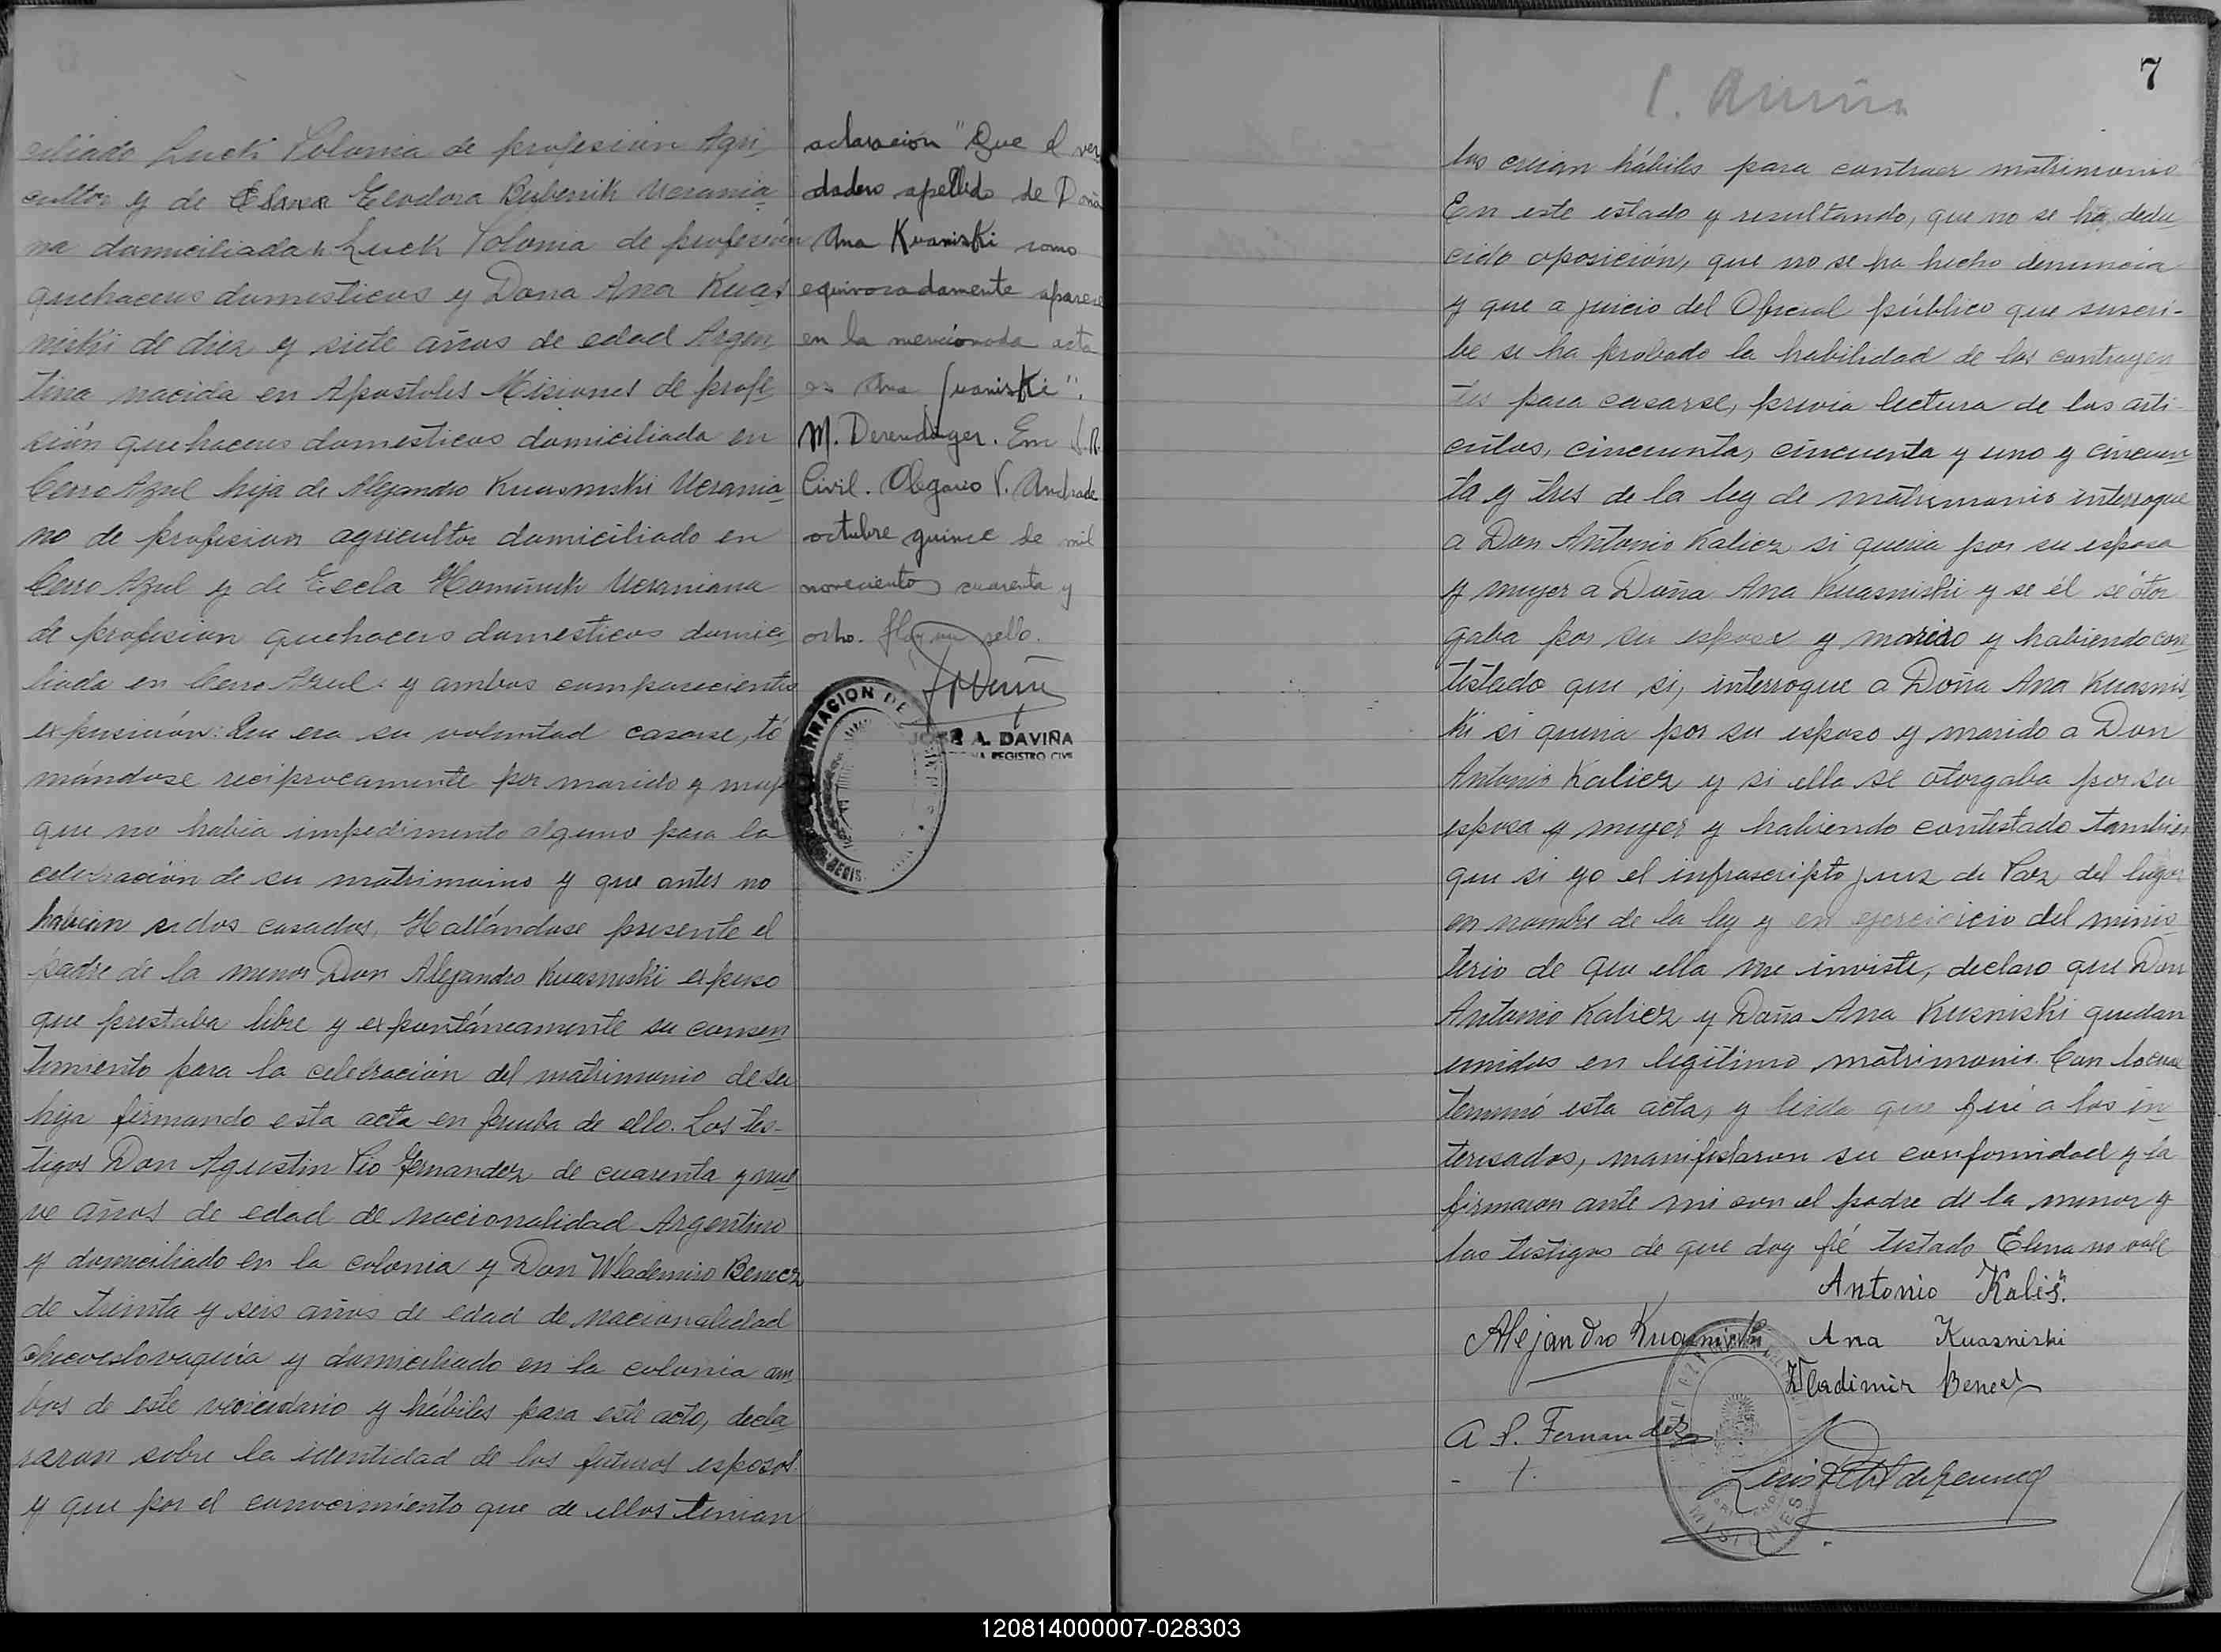 ciliado Luck Polonia de profesion Agri
cultor y de Elena Eleodora Bubernik Ucrania
na domiciliada Luck Polonia de profesion
quehaceres domesticos y Doña Ana Kuas
niski de diez y siete años de edad Argen
tina nacida en Apostoles Misiones de profe
sión quehaceres domesticos domiciliada en
Cerro Azul hija de Alejandro Kuasniski Ucrania
no de profesion agricultor domiciliado en
Cerro Azul y de Ucraniana
de profesion quehaceres domesticos domici
liada en Cerro Azul y ambos comparecientes
exposición: Que era su voluntad casarse, to
mándose reciprocamente por marido y mujer
que no habia impedimento alguno para la
celebración de su matrimonio y que antes no
habian sidos casados. Hallándose presente el
padre de la menor Don Alejandro Kuasniski expuso
que prestaba libre y expontáneamente su consen
timiento para la celebración del matrimonio de su
hija firmando esta acta en prueba de ello. Los tes-
tigos Don Agustin Pio Fernandez de cuarenta y nue
ve años de edad de nacionalidad Argentino
y domiciliado en la colonia y Don Wlademiro Benecz
de treinta y seis años de edad de nacionalidad
checoeslovaquia y domiciliado en la colonia am
bos de este vecindario y hábiles para este acto, decla
raron sobre la identidad de los futuros esposos
y que por el conocimiento que de ellos tenian
aclaración "Que el ver
dadero apellido de Doña
Ana Kuaniski como
equivocadamente aparece
en la mencionada acta
es Ana Juaniski".
M. Derendinger. Enc. J. R.
Civil. Olegario V. Andrade
octubre quince de mil
novecientos cuarenta y
ocho. Hay un sello.
JOSE A. DAVIÑA
REGISTRO CIVIL
7
los creian hábiles para contraer matrimonio
En este estado y resultando, que no se ha dedu
cido oposición, que no se ha hecho denuncia
y que a juicio del Oficial público que suscri-
be se ha probado la habilidad de los contrayen
tes para casarse, previa lectura de los arti-
culos, cincuenta, cincuenta y uno y cincuen
ta y tres de la ley de matrimonio interrogue
a Don Antonio Kalicz si queria por su esposa
y mujer a Doña Ana Kuasniski y se él se otor
gaba por su esposo y marido y habiendo con
testado que si, interrogue a Doña Ana Kuasnis
ki si queria por su esposo y marido a Don
Antonio Kalicz y si ella se otorgaba por su
esposa y mujer y habiendo contestado tambien
que si yo el infrascripto juez de Paz del lugar
en nombre de la ley y en ejercicicio del minis
terio de que ella me inviste, declaro que Don
Antonio Kalicz y Doña Ana Kusniski quedan
unidos en legitimo matrimonio. Con lo cual
terminó esta acta, y leida que fué a los in
teresados, manifestaron su conformidad y la
firmaron ante mi con el padre de la menor y
los testigos de que doy fé testado Elena no vale
Antonio Kališ.
Alejandro Kuasniski Ana Kuasniski
Wladimir Benecz
A P. Fernandez
MISIONES
120814000007-028303